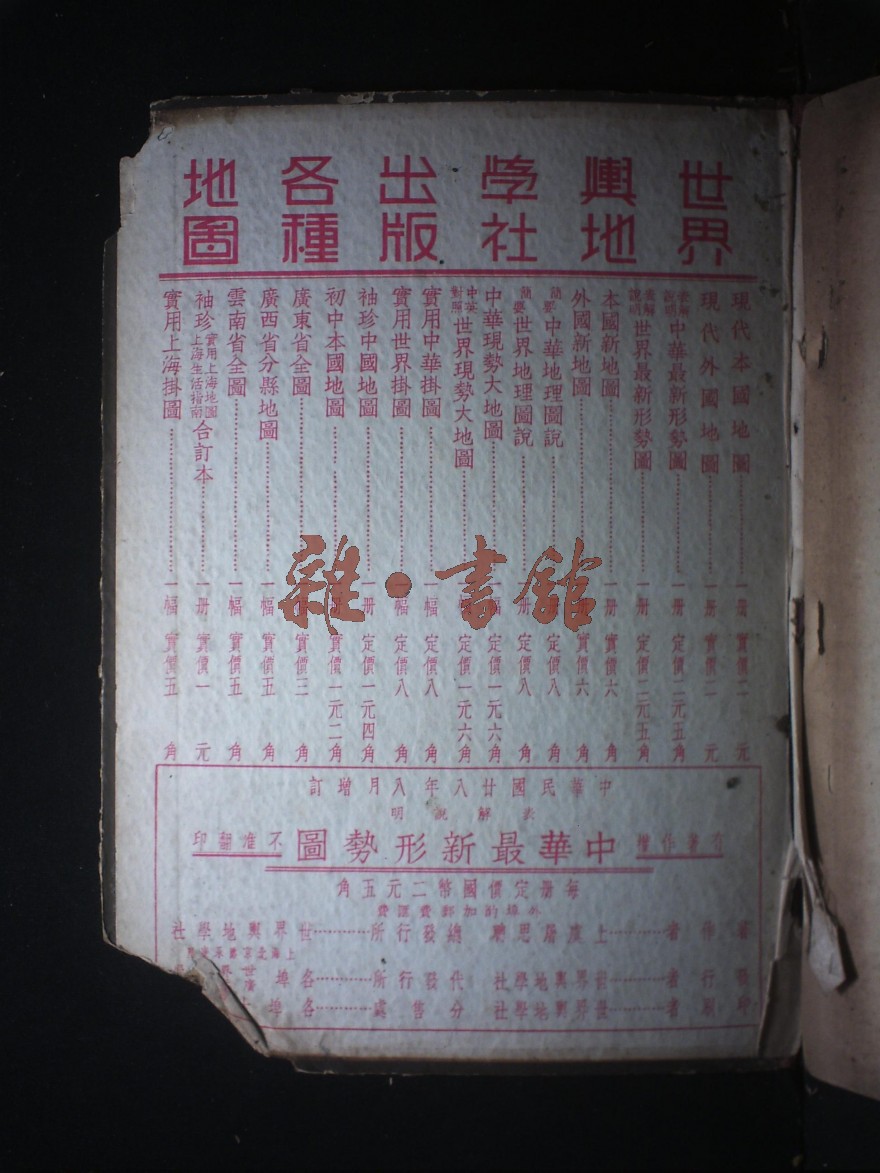 世界輿地學社出版各種地圖
現代本國地圖………一册 實價二元
現代外國地圖………一册 實價二元
表解說明中華最新形勢圖………一册 定價二元五角
表解說明世界最新形勢圖………一册 定價二元五角
本國新地圖………一册 實價六角
外國新地圖………一册 實價六角
簡要中華地理圖說………册 定價八角
簡要世界地理圖說………册 定價八角
中華現勢大地圖………幅 定價一元六角
中英對照世界現勢大地圖………幅 定價一元六角
實用中華掛圖………一幅 定價八角
實用世界掛圖………一幅 定價八角
袖珍中國地圖………一册 定價一元四角
初中本國地圖………册 實價一元二角
廣東省全圖………一幅 實價三角
廣西省分縣地圖………一幅 實價五角
雲南省全圖………一幅 實價五角
袖珍實用上海地圖上海生活指南合訂本………一册 實價一元
實用上海掛圖………一幅 實價五角
雜·書館
中華民國廿八年八月增訂
表解說明
有著作權 中華最新形勢圖 不准翻印
每册定價國幣二元五角
外埠酌加郵費匯費
著作者………上虞屠思聰
發行者………世界輿地學社
印刷者………世界輿地學社
總發行所………世界輿地學社
代發行所………各埠世
分售處………各埠